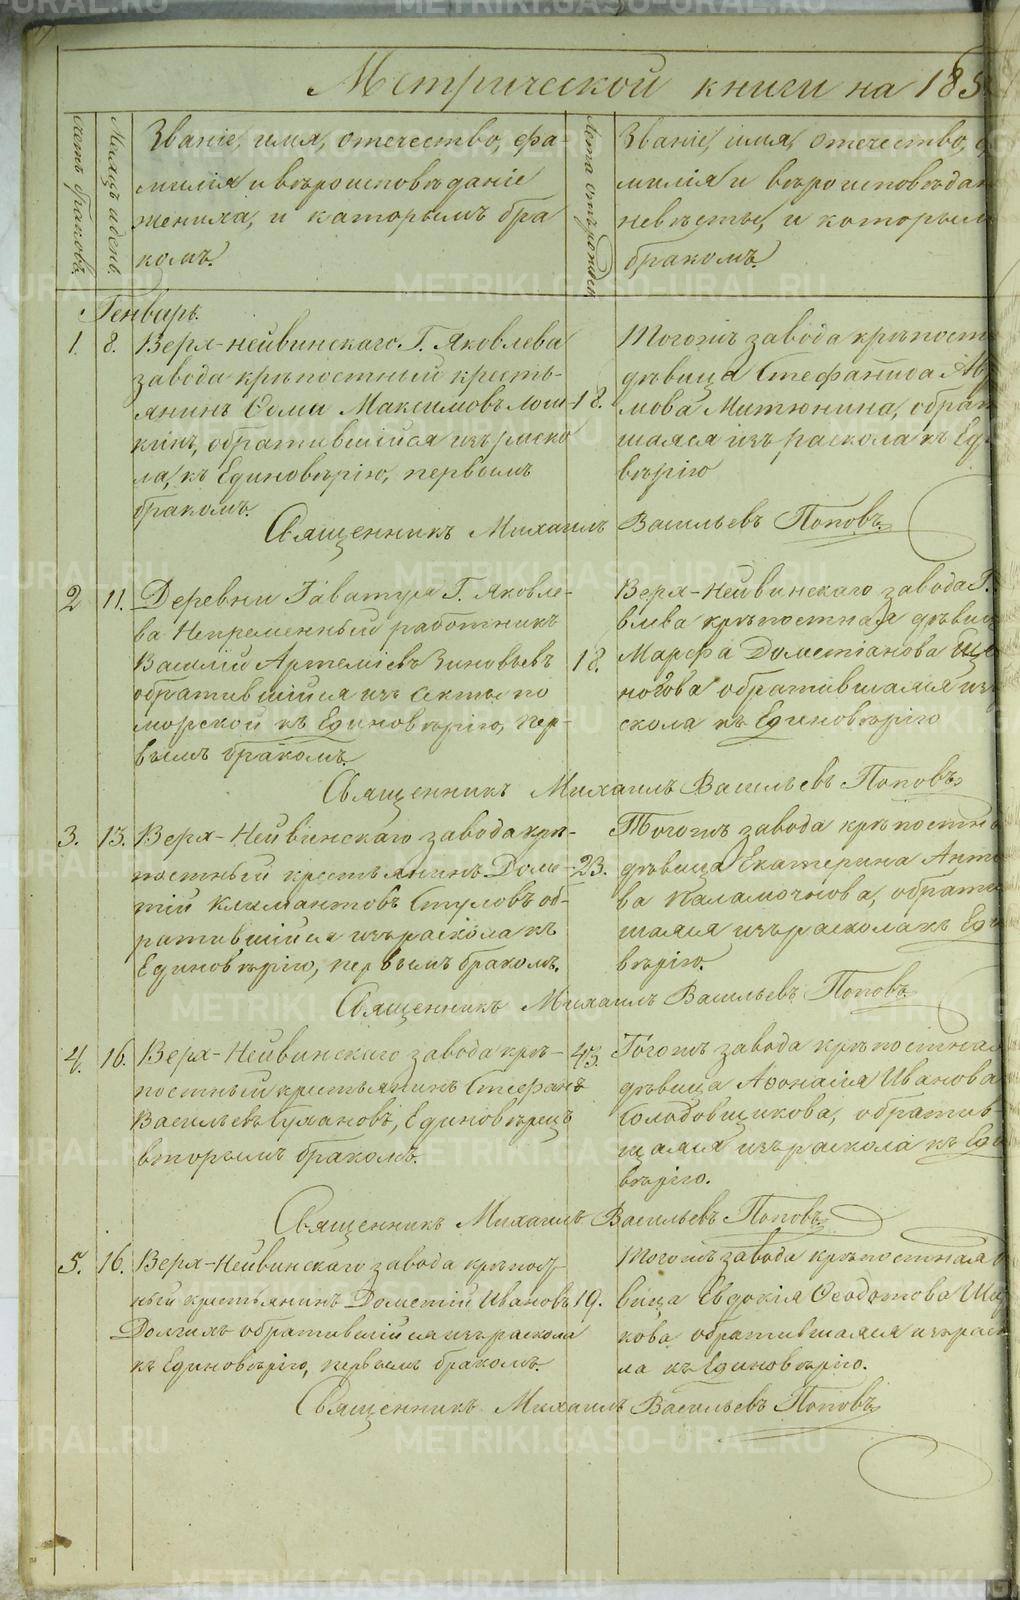 Метрической книги на 185
Счетъ браковъ.
Мѣсяцъ и день.
Званіе, имя, отечество, фа-
милія и вѣроисповѣданіе
жениха, и каторымъ бра
комъ.
Лѣта
Званіе, имя, отечество, ф
милія и вѣроисповѣдан
невѣсты, и которым
бракомъ.
Генварь.
1. 8. Верх-нейвинскаго Г. Яковлева
завода крѣпостный кресть-
янинъ Ѳома Максимовъ
обратившійся изъ раско
ла, къ Единовѣрію, первымъ
бракомъ.
18.
Тогожъ завода крѣпост
дѣвица Стефанида Ав
мова Митюнина, обрат
шаяся изъ раскола къ Ед
вѣрію
Священникъ Михаилъ Васильевъ Поповъ
2 11. Деревни Таватуя Г. Яковле-
ва Непременный работникъ
Василій Артеміевъ Зиновьевъ
обратившійся изъ секты по
морской къ Единовѣрію, пер-
вымъ бракомъ.
18.
Верх-Нейвинскаго завода Г.
влева крѣпостная дѣвиц
Марфа Дометіанова
ногова обратившаяся из
скола къ Единовѣрію
Священникъ Михаилъ Васильевъ Поповъ
3. 13. Верх-Нейвинскаго завода крѣ-
постный крестьянинъ Доме-
тій Климантовъ Стуловъ об-
ратившійся изъ раскола къ
Единовѣрію, первымъ бракомъ.
23.
Тогожъ завода крѣпостна
дѣвица Екатерина Анто
ва Каламочнова, обрати
шаяся изъ раскола къ Еди
вѣрію.
Священникъ Михаилъ Васильевъ Поповъ
4. 16. Верх-Нейвинскаго завода крѣ-
постный крестьянинъ Стефанъ
Васильевъ Сумановъ, Единовѣрецъ
вторымъ бракомъ.
43.
Тогожъ завода крѣпостная
дѣвица Аѳонасія Иванова
Солодовщикова, обратив-
шаяся изъ раскола къ Еди
вѣрію.
Священникъ Михаилъ Васильевъ Поповъ
5. 16. Верх-Нейвинскаго завода крѣпост
ный крестьянинъ Дометій Ивановъ
Долгихъ обратившійся изъ раскола
къ Единовѣрію, первымъ бракомъ.
19.
Тогожъ завода крѣпостная д
вица Евдокія Ѳеодотова
кова обратившаяся изъ раск
ла къ Единовѣрію.
Священникъ Михаилъ Васильевъ Поповъ
METRIKI.GASO-URAL.RU